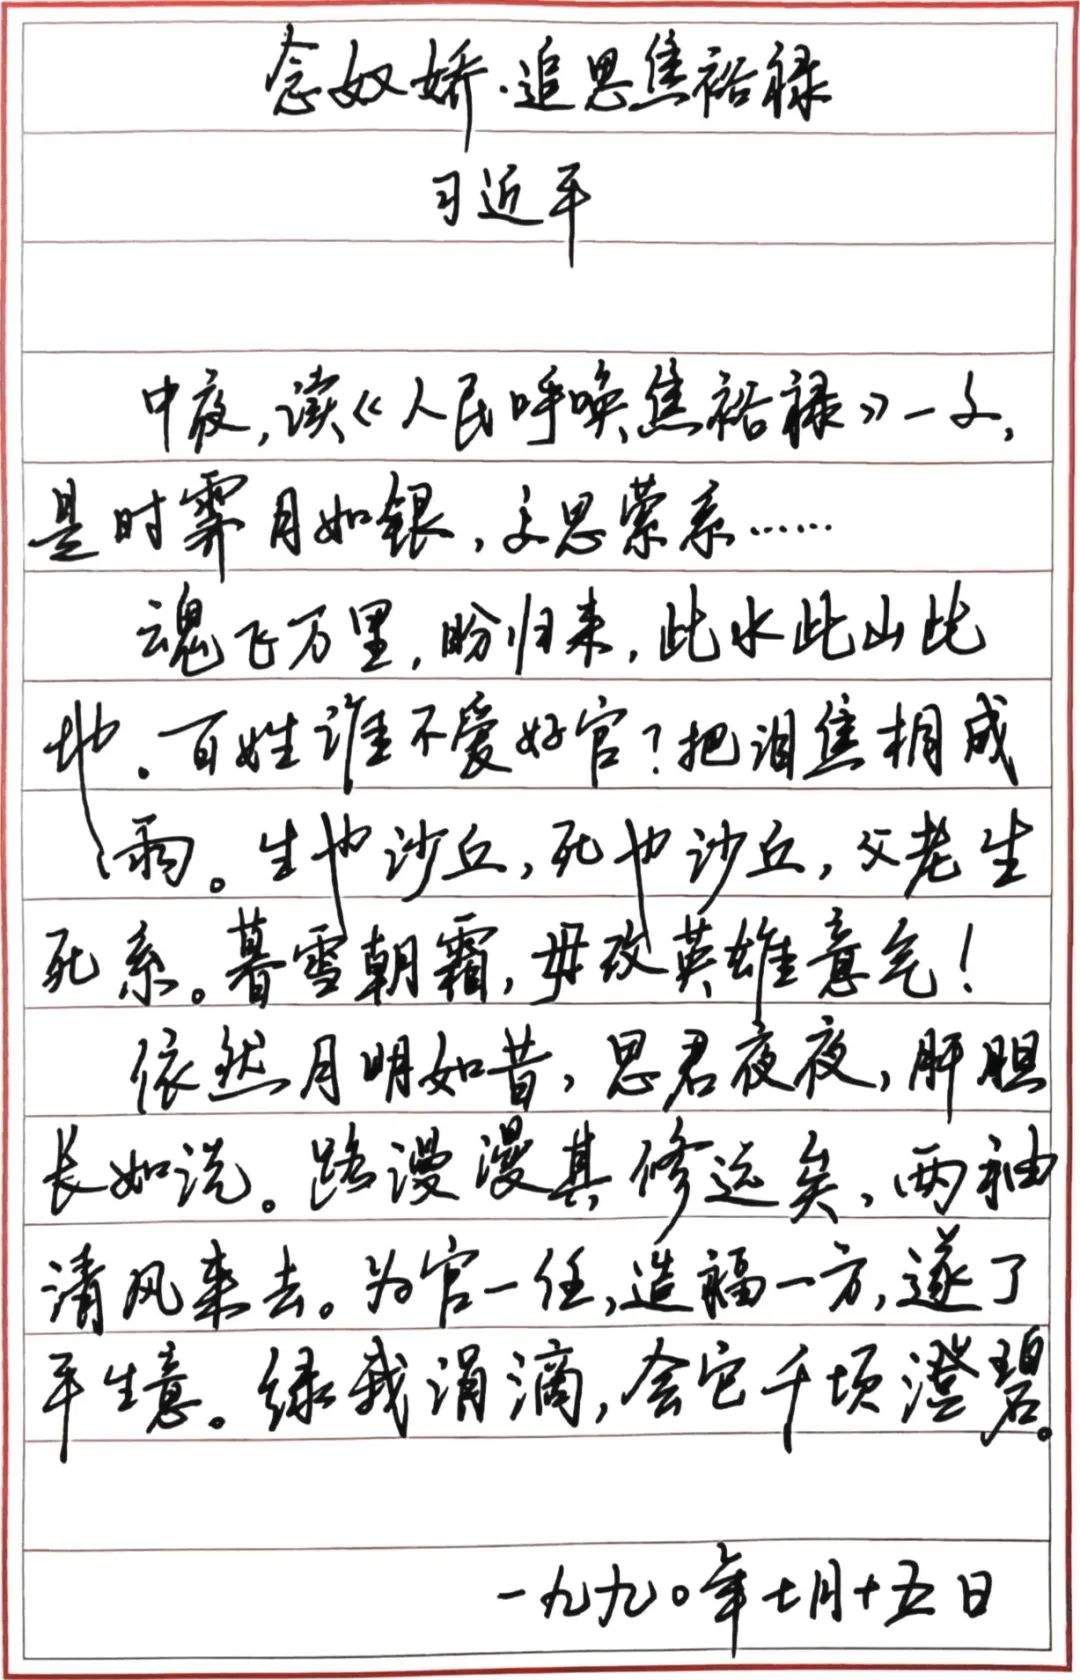 念奴娇·追思焦裕禄
习近平
中夜,读《人民呼唤焦裕禄》一文,
是时霁月如银,文思萦系……
魂飞万里,盼归来,此水此山此
地。百姓谁不爱好官?把泪焦桐成
雨。生也沙丘,死也沙丘,父老生
死系。暮雪朝霜,毋改英雄意气!
依然月明如昔,思君夜夜,肝胆
长如洗。路漫漫其修远矣,两袖
清风来去。为官一任,造福一方,遂了
平生意。绿我涓滴,会它千顷澄碧。
一九九〇年七月十五日